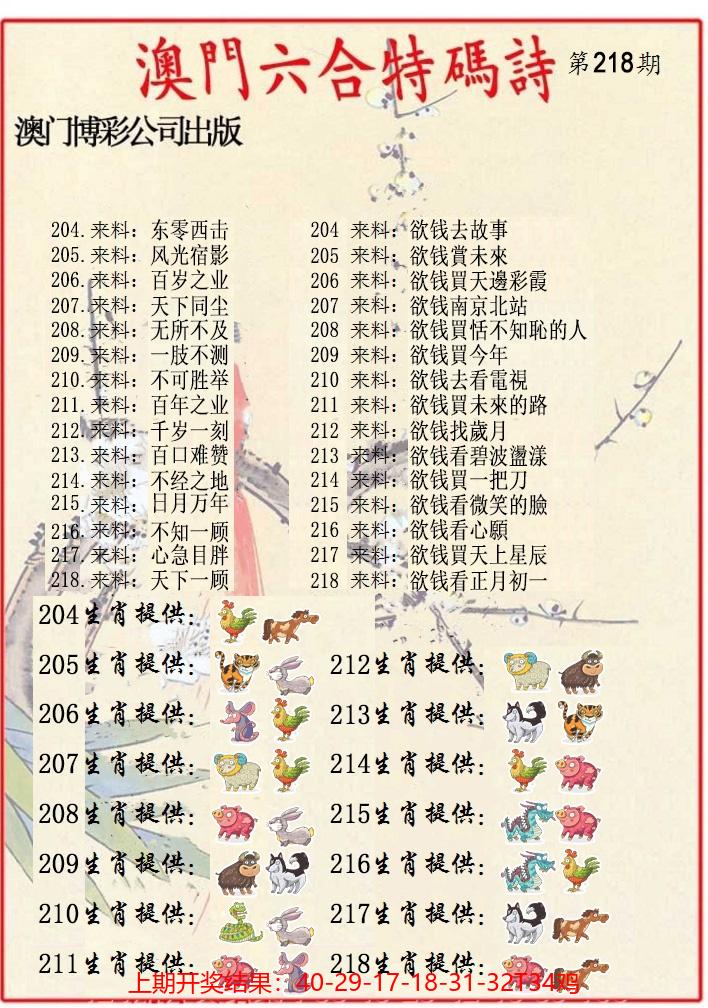 澳門六合特碼詩 第218期
澳门博彩公司出版
204.来料：东零西击
205.来料：风光宿影
206.来料：百岁之业
207.来料：天下同尘
208.来料：无所不及
209.来料：一肢不测
210.来料：不可胜举
211.来料：百年之业
212.来料：千岁一刻
213.来料：百口难赞
214.来料：不经之地
215.来料：日月万年
216.来料：不知一顾
217.来料：心急目胖
218.来料：天下一顾
204 来料：欲钱去故事
205 来料：欲钱賞未來
206 来料：欲钱買天邊彩霞
207 来料：欲钱南京北站
208 来料：欲钱買恬不知恥的人
209 来料：欲钱買今年
210 来料：欲钱去看電視
211 来料：欲钱買未來的路
212 来料：欲钱找歲月
213 来料：欲钱看碧波盪漾
214 来料：欲钱買一把刀
215 来料：欲钱看微笑的臉
216 来料：欲钱看心願
217 来料：欲钱買天上星辰
218 来料：欲钱看正月初一
204生肖提供：
205生肖提供：
206生肖提供：
207生肖提供：
208生肖提供：
209生肖提供：
210生肖提供：
211生肖提供：
212生肖提供：
213生肖提供：
214生肖提供：
215生肖提供：
216生肖提供：
217生肖提供：
218生肖提供：
上期开奖结果：40-29-17-18-31-32T34鸡